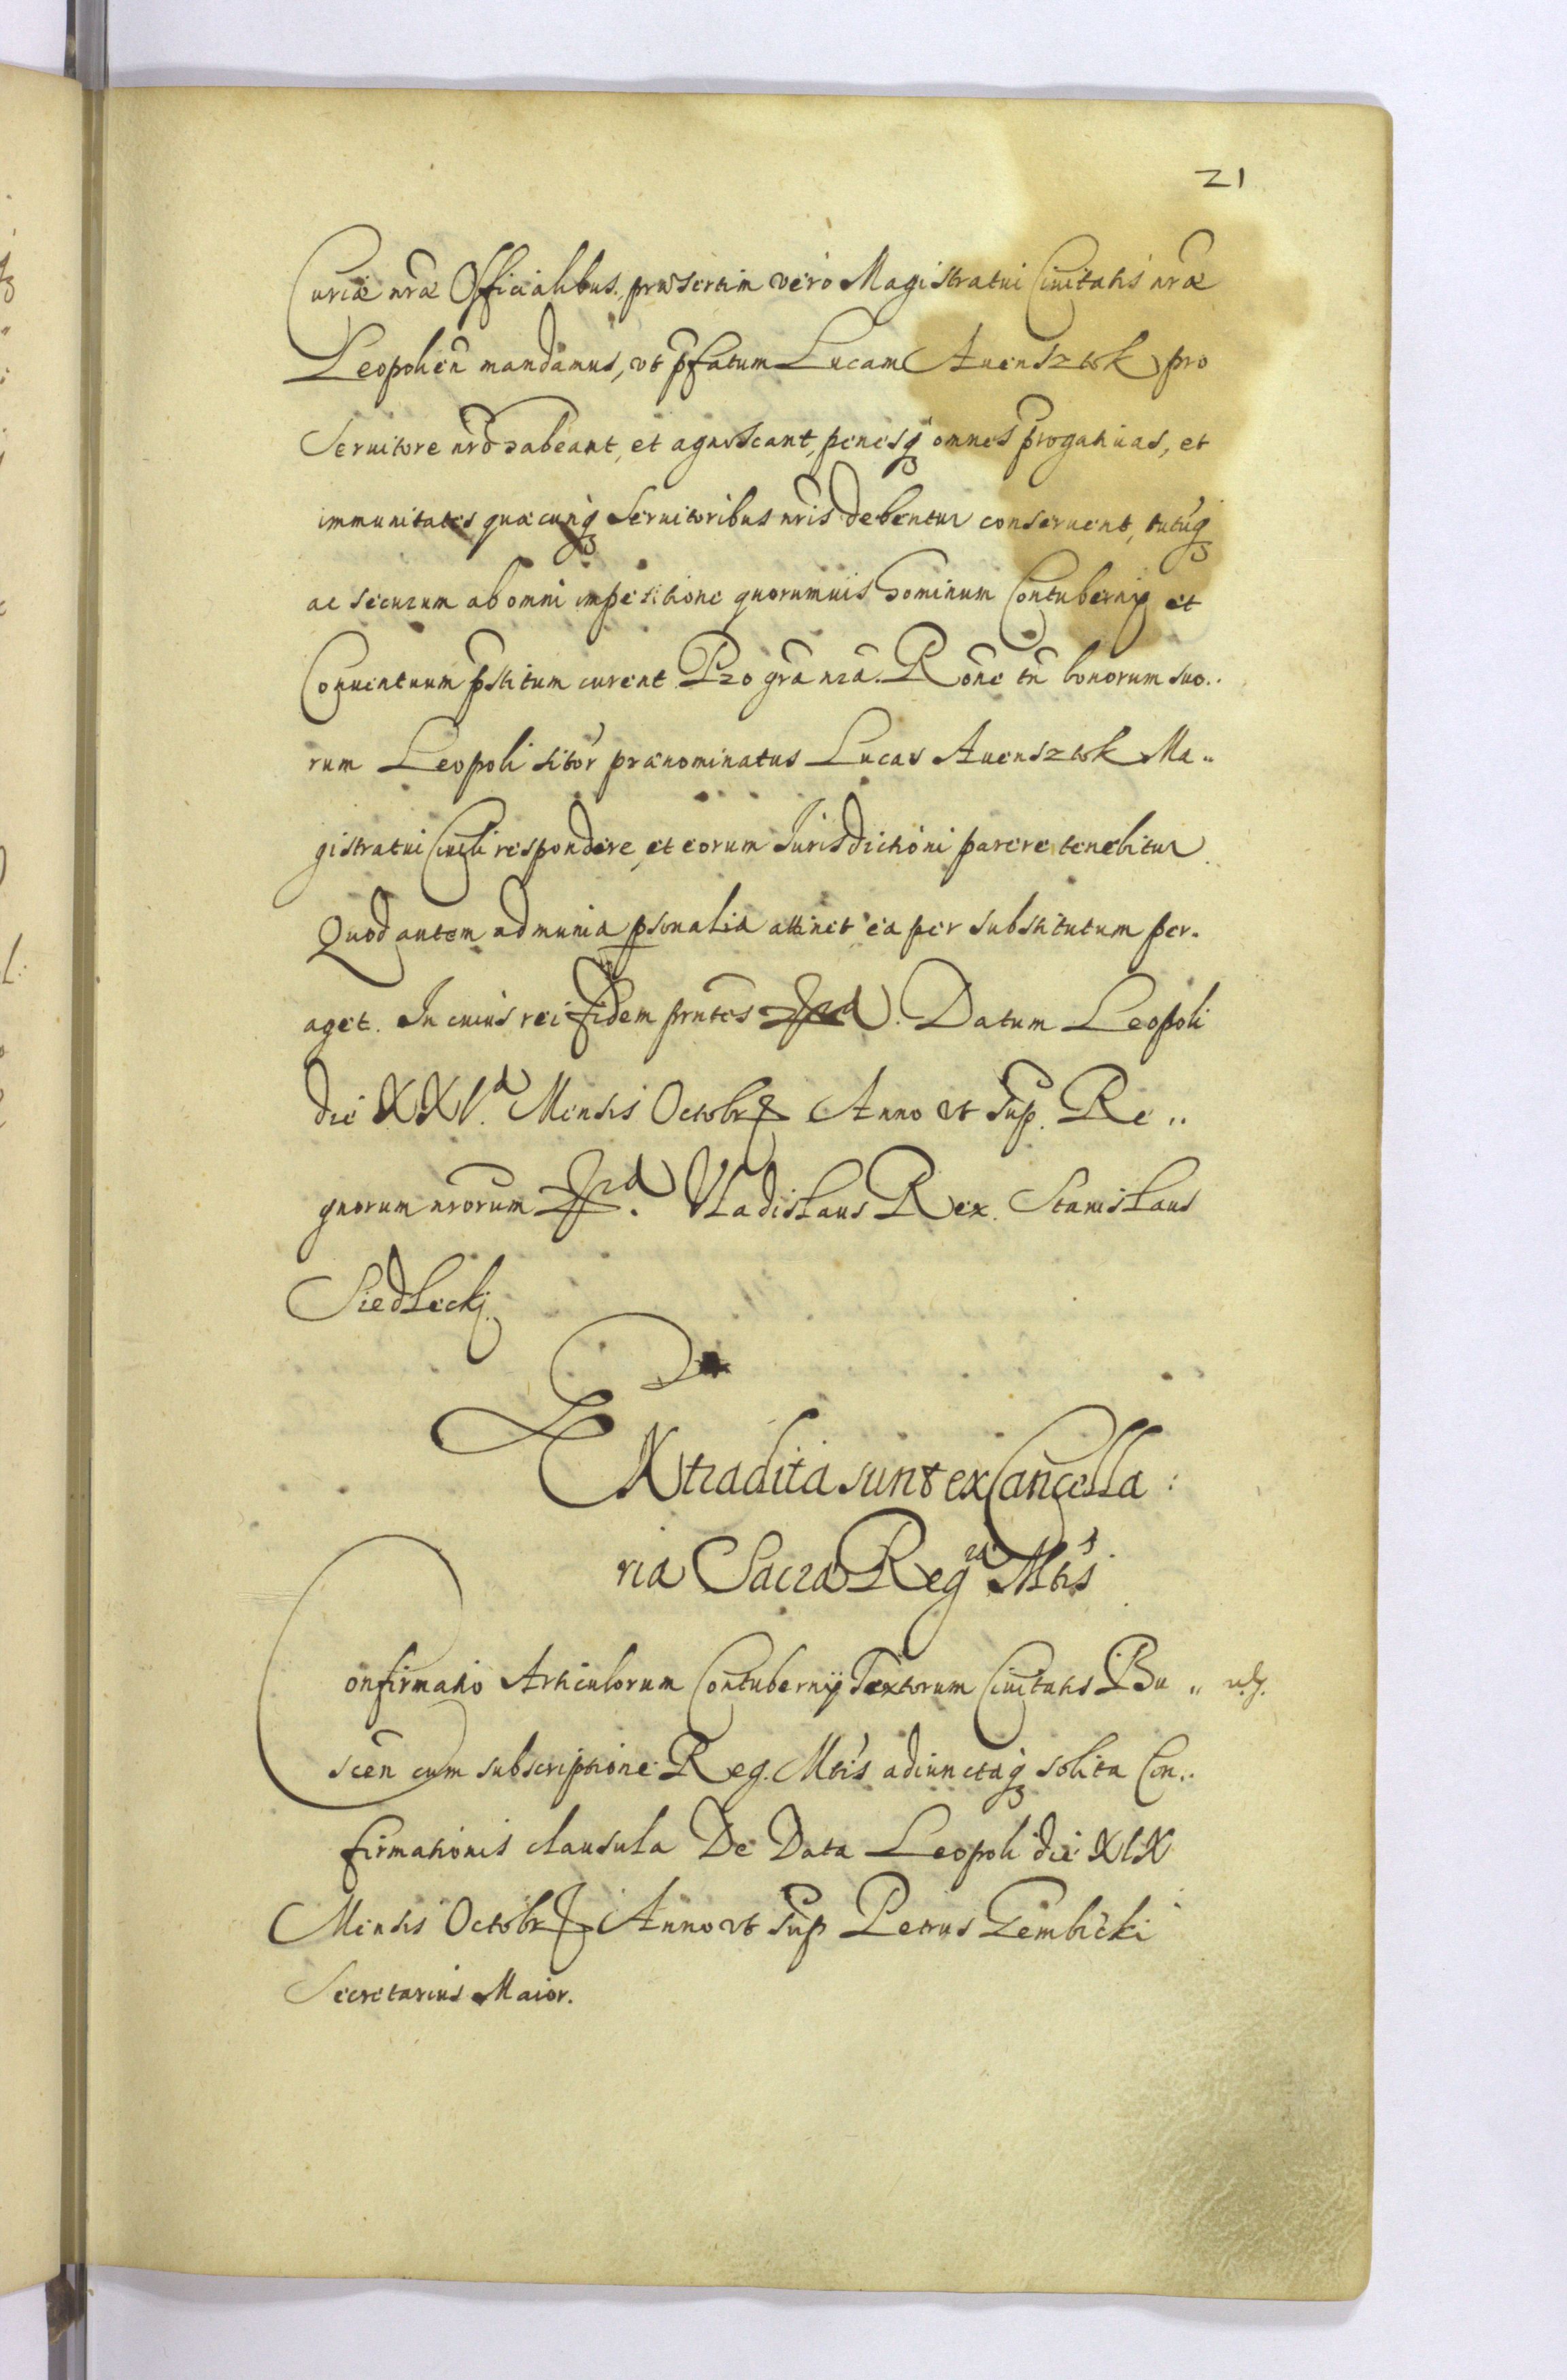 21
Curiæ nr̃æ Officialibus, præsertim vero Magistratui Ciuitatis nr̃æ
Leopolien̄ mandamus, vt p̄fatum Lucam Auensztok pro
Seruitore nr̃o habeant, et agnoscant, penesq́ omnes p̄rogatiuas, et
immunitates quæcunq́ Seruitoribus nr̃is debentur conseruent, tutũq́
ac securum ab omni impetitione quorumuis hominum Contubernij et
Conuentuum p̄stitum curent Pro gr̃a nr̃a. Rõne tñ bonorum suo..
rum Leopoli sitor̃ prænominatus Lucas Auensztok Ma..
gistratui Ciuili respondere, et eorum Jurisdictioni parere tenebitur.
Quod autem ad munia p̱sonalia attinet ea per substitutum per.
aget. In cuius rei fidem prñtes. Datum Leopoli
die XXV.a Mensis Octobr Anno vt Sup. Re..
gnorum nr̃orum. Vladislaus Rex. Stanislaus
Siedleckj.
EXtradita sunt ex Cancella:
ria Sacra Reg.æ Mtis
Confirmatio Articulorum Contubernij Textorum Ciuitatis Bu..
scen̄ cum subscriptione Reg. Mtis adiunctaq́ solita Con..
firmationis clausula De Data Leopoli die XIX
Mensis Octobr Anno vt Sup Petrus Gembicki
Secretarius Maior.